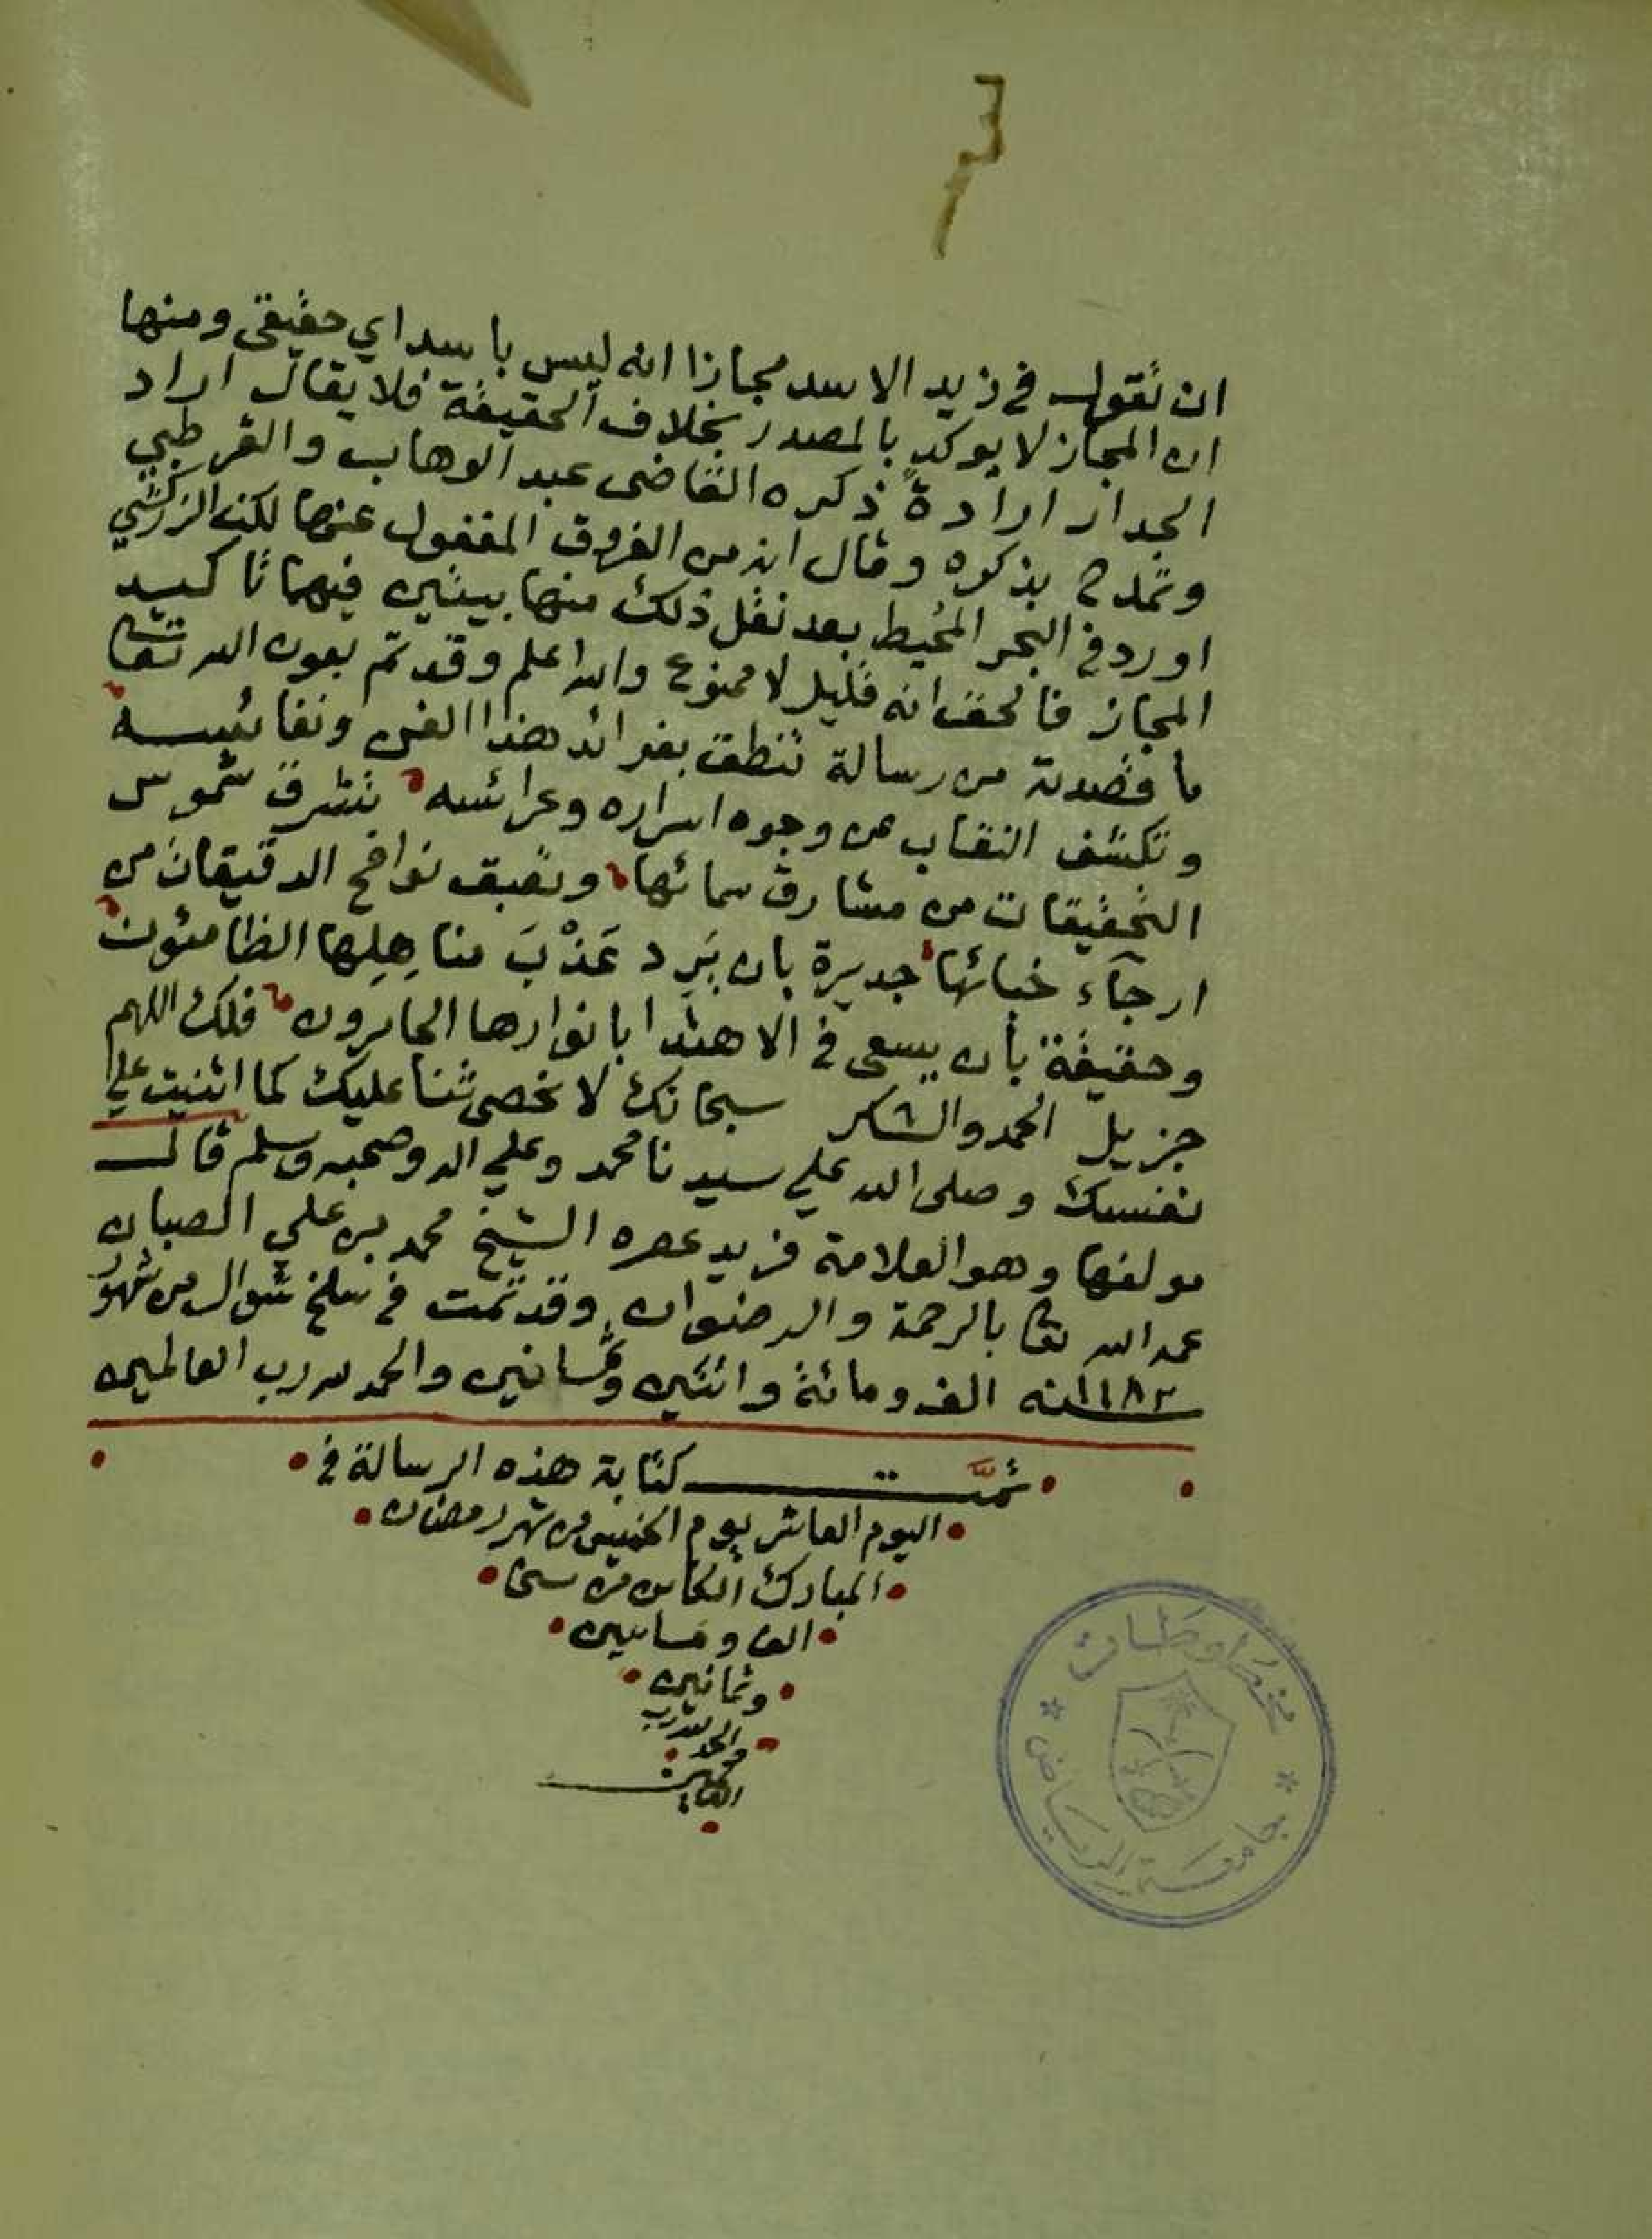 ان تقول في زيد الاسد مجازا انه ليس باسد اي حقيقي ومنها
ان المجاز لا يوكد بالمصدر بخلاف الحقيقة فلا يقال اراد
الجدار ارادةً ذكره القاضى عبد الوهاب والقرطبي
وتمدح بذكره وقال انه من الفروق المغفول عنها لكن الزركشي
اورد في البحر المحُيط بعد نقل ذلك منها بيتين فيهما تاكيد
المجاز فالحق انه قليل لا ممنوع والله اعلم وقد تم بعون الله تعا
ما قصدته من رسالة تنطق بفرائد هذا الفن ونفائسه
وتكشف النقاب عن وجوه اسراره وعرائسه تشرق شموس
التحقيقات من مشارق سمائها وتعبق نوافح الدقيقات من
ارجآء خبائها جديرة بان يَرِد عَذْبَ مناهِلِها الظامئون
وحقيقة بأن يسعى في الاهتدا بانوارها الحايرون فلك اللهم
جزيل الحمد والشكر سبحانك لا نحصى ثنا عليك كما اثنيت علي
نفسك وصلى الله علي سيدنا محمد وعلي اله وصحبه وسلم قال
مولفها وهو العلامة فريد عصره الشيخ محمد بن علي الصبان
عمه الله تعا بالرحمة والرضوان وقد تمت في سلخ شوال من شهور
سنه ١١٨٢ الف ومائة واثنين وثمانين والحمد لله رب العالمين
تمَّت كتابة هذه الرسالة في
اليوم العاشر يوم الخميس من شهر رمضان
المبارك من
الف و
وثمانين
والحمد لله رب
العالمين
مخطوطات
جامعة الرياض